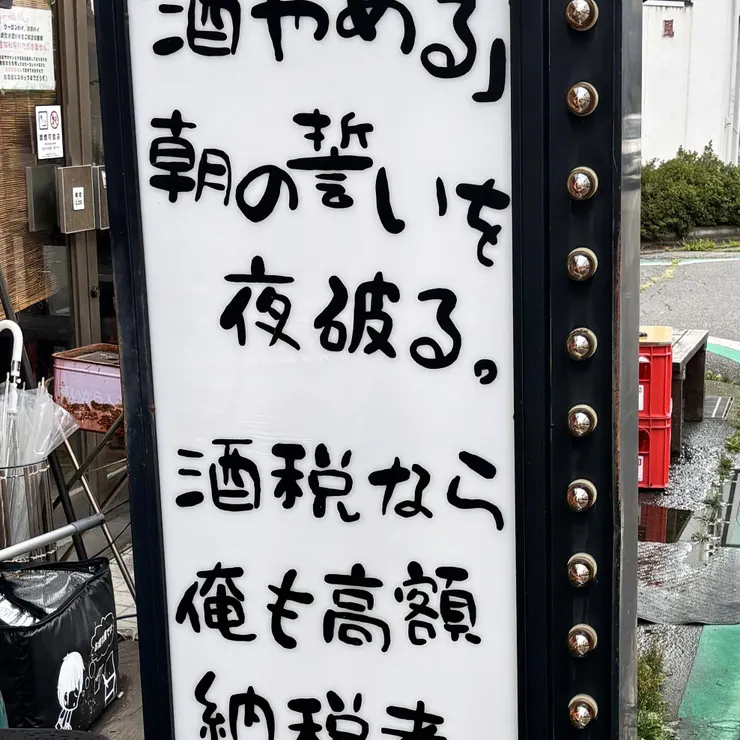 酒やめる」
朝の誓いを
夜破る。
酒税なら
俺も高額
納税者